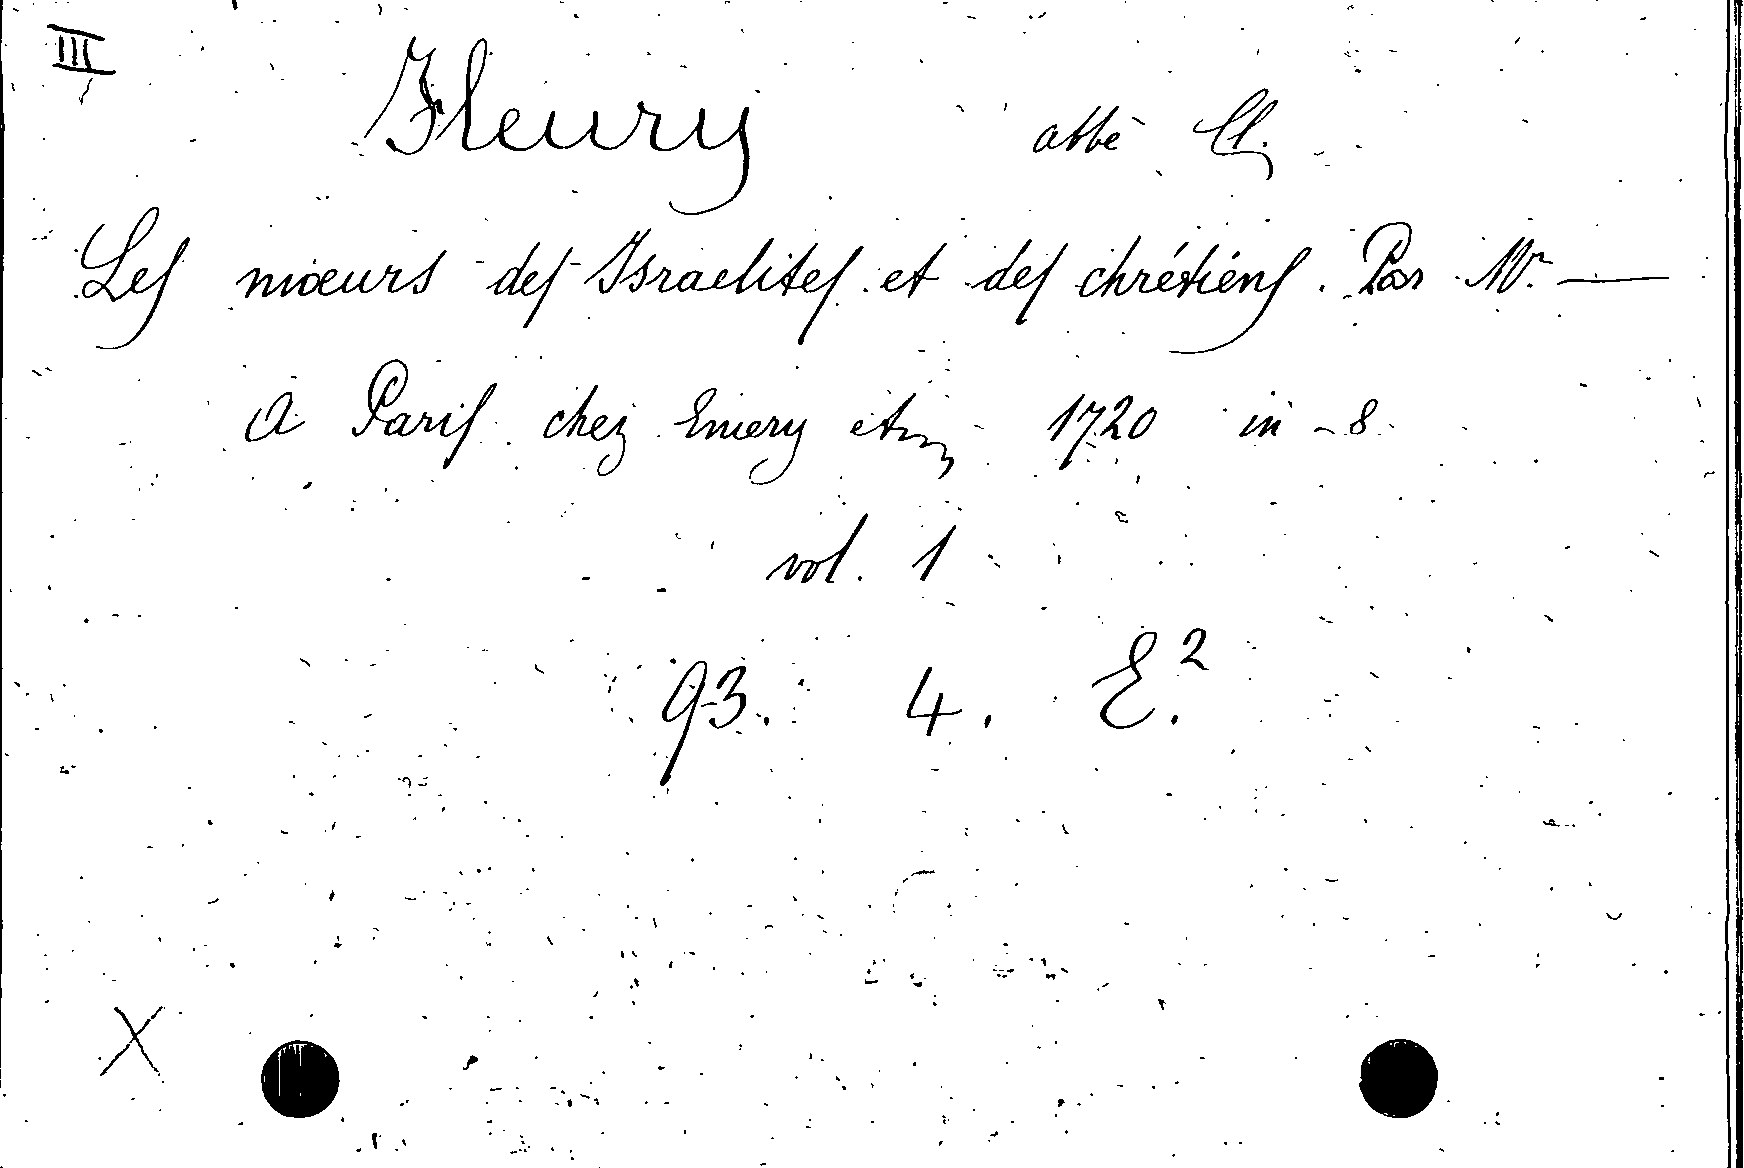 III
Fleury abbé Cl.
Les mœurs des Israelites et des chrétiens. Par Mr. —
A Paris chez Emery 1720 in-8
vol. 1
93. 4. E.²
X